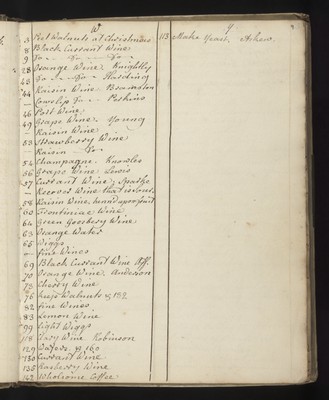 W
3 Pot Walnuts at Christmas
8 Black Currant Wine
9 Do Do Do
28 Orange Wine. Knightly
43 Do Do Harding
44 Raisin Wine
— Cowslip Do Perkins
46 Port Wine
49 Grape Wine. Young
— Raisin Wine
53 Strawberry Wine
Raisin Do
54 Champagne. Knowles
56 Grape Wine. Lewis
57 Currant Wine. Sparke
— Recover Wine that is sour
58 Raisin Wine.
60 Frontiniac Wine
64 Green Goosbery Wine
63 Orange Water
65 Wiggs
— fine Wines
69 Black Currant Wine
70 Orange Wine. Anderson
75 Cherry Wine
76 keep Walnuts & 132
82 fine Wines
83 Lemon Wine
99 Light Wiggs
118 Wine Robinson
129 Wafers. & 160
130 Currant Wine
135 Rasberry Wine
142 Wholsome Coffee
Y
113 Make Yeast. Askew.